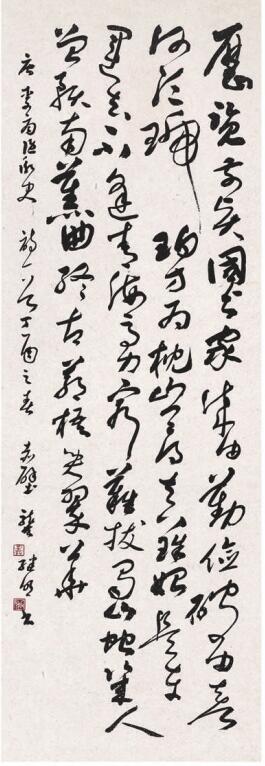 歷覽前賢國與家成由勤儉破由奢
何須琥珀方為枕豈得真珠始是車
運去不逢青海馬力窮難拔蜀山蛇幾人
曾預南薰曲終古蒼梧哭翠華
唐李商隱詠史詩一首丁酉之春赤壁龔書